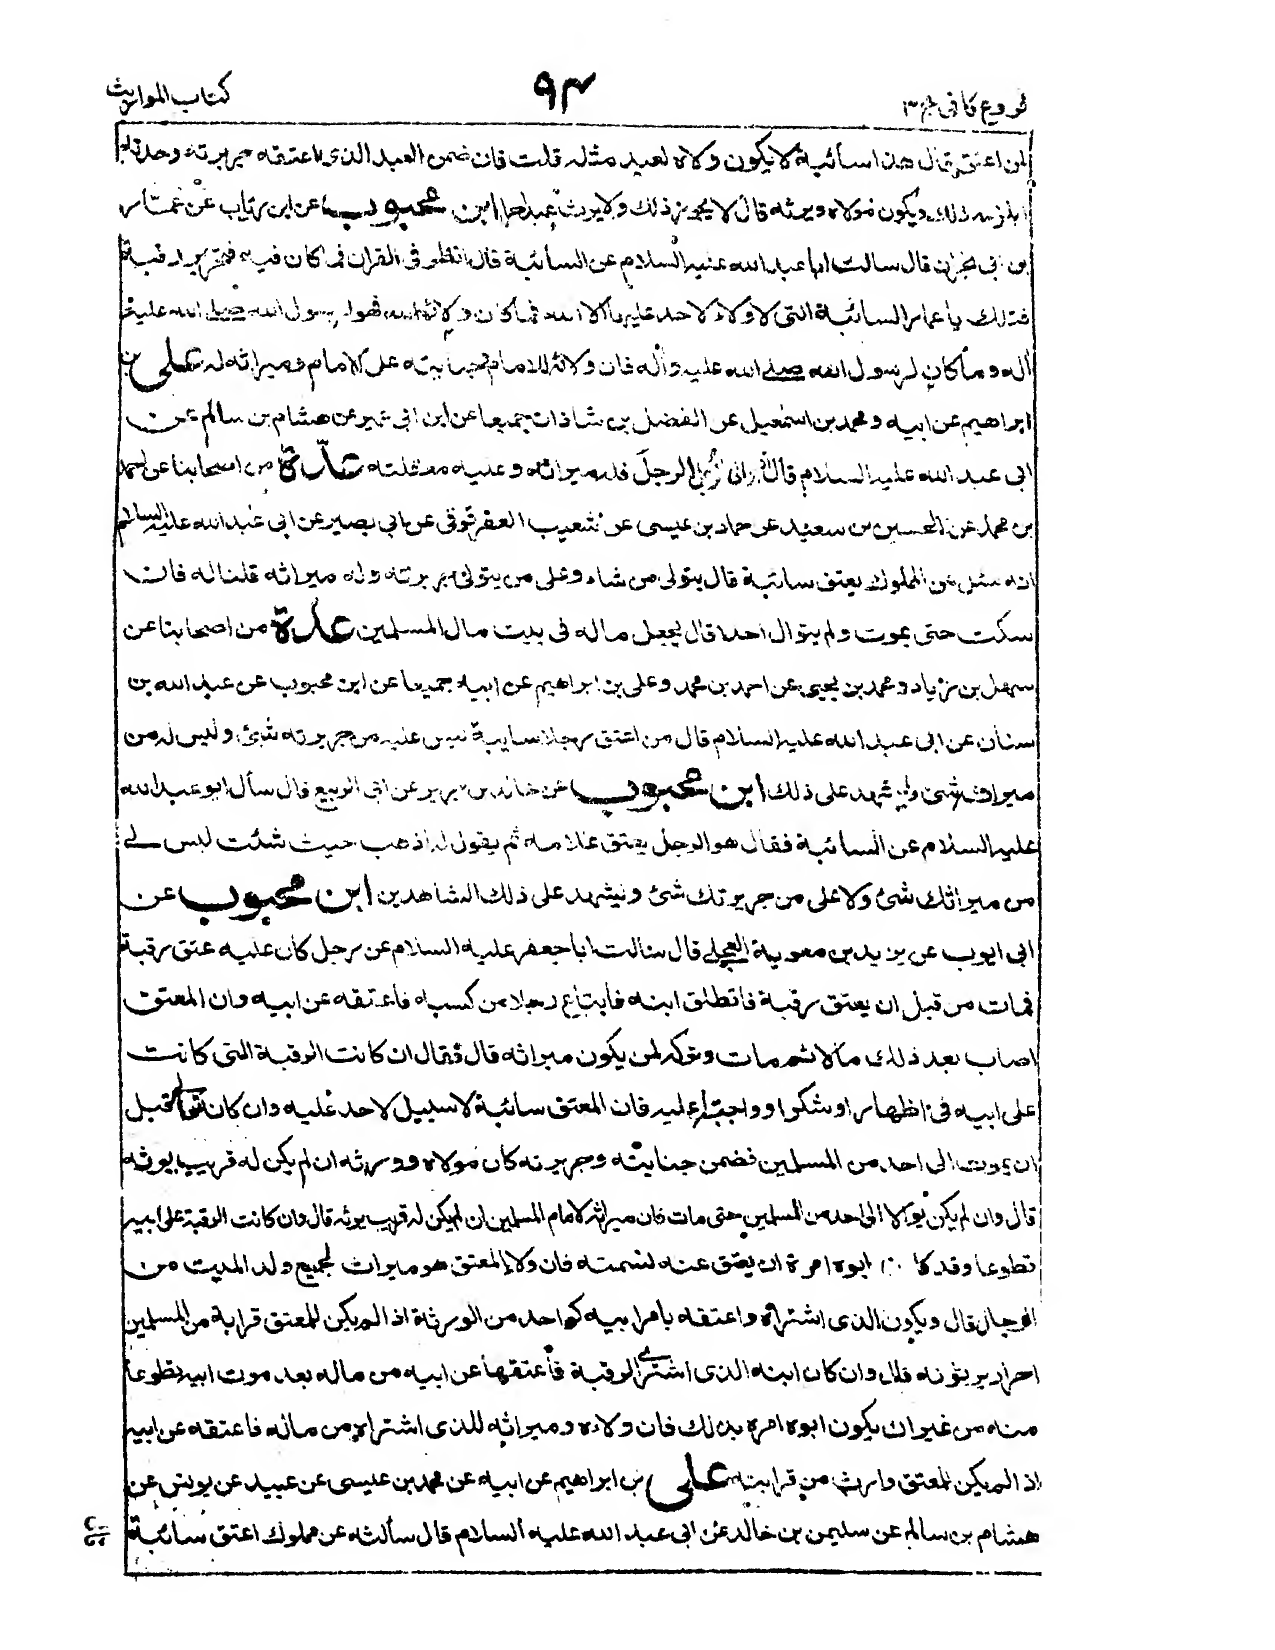 فروع كافى ج ٣
٩٤
كتاب المواريث
لمن اعتق قال هذا سائبة لا يكون ولاؤه لعبد مثله قلت فان ضمن العبد الذى اعتقه جريرته وحدثه
ايلزمه ذلك ويكون مولاه ويرثه قال لا يجوز ذلك ولا يرث عبد حرا ابن محبوب عن ابن رئاب عن عمار
بن ابى قال سالت ابا عبد الله عليه السلام عن السائبة قال انظر فى القران فما كان فيه فتحرير رقبة
فتلك يا عمار السائبة التى لا ولاء لاحد عليها الا الله فما كان ولائه لله فهو لرسول الله صلى الله عليه و
اله وما كان لرسول الله صلى الله عليه واله فان ولائه للامام وجنايته على الامام وميراثه له على بن
ابراهيم عن ابيه ومحمد بن اسمعيل عن الفضل بن شاذان جميعا عن ابن ابى عمير عن هشام بن سالم عن
ابى عبد الله عليه السلام قال اذا والى الرجل الرجل فله ميراثه وعليه معقلته عدة من اصحابنا عن احمد
بن محمد عن الحسين بن سعيد عن حماد بن عيسى عن شعيب العقرقوفى عن ابى بصير عن ابى عبد الله عليه السلام
انه سئل عن المملوك يعتق سائبة قال يتولى من شاء وعلى من يتولى جريرته وله ميراثه قلنا له فان
سكت حتى يموت ولم يتوال احدا قال يجعل ماله فى بيت مال المسلمين عدة من اصحابنا عن
سهل بن زياد ومحمد بن يحيى عن احمد بن محمد وعلى بن ابراهيم عن ابيه جميعا عن ابن محبوب عن عبد الله بن
سنان عن ابى عبد الله عليه السلام قال من اعتق رجلا سايبة فليس عليه من جريرته شئ وليس له من
ميراثه شئ وليشهد على ذلك ابن محبوب عن خالد بن جرير عن ابى الربيع قال سأل ابو عبد الله
عليه السلام عن السائبة فقال هو الرجل يعتق غلامه ثم يقول له اذهب حيث شئت ليس لے
من ميراثك شئ ولا على من جريرتك شئ ويشهد على ذلك الشاهدين ابن محبوب عن
ابى ايوب عن بريد بن معوية العجلے قال سالت ابا جعفر عليه السلام عن رجل كان عليه عتق رقبة
فمات من قبل ان يعتق رقبة فانطلق ابنه فابتاع رجلا من كسبه فاعتقه عن ابيه وان المعتق
اصاب بعد ذلك مالا ثم مات وتركه لمن يكون ميراثه قال فقال ان كانت الرقبة التى كانت
على ابيه فى ظهار او شكر او واجبة عليه فان المعتق سائبة لا سبيل لاحد عليه وان كان توالى قبل
ان يموت الى احد من المسلمين فضمن جنايته وجريرته كان مولاه وورثه ان لم يكن له قريب يرثه
قال وان لم يكن توالى الى احد من المسلمين حتى مات فان ميراثه لامام المسلمين ان لم يكن له قريب يرثه قال وان كانت الرقبة على ابيه
تطوعا وقد كان ابوه امره ان يعتق عنه نسمة فان ولاء المعتق هو ميراث لجميع ولد الميت من
الرجال قال ويكون الذى اشتراه واعتقه بامر ابيه كواحد من الورثة اذا لم يكن للمعتق قرابة من المسلمين
احرار يرثونه قال وان كان ابنه الذى اشترى الرقبة فأعتقها عن ابيه من ماله بعد موت ابيه تطوعا
منه من غير ان يكون ابوه امره بذلك فان ولاءه وميراثه للذى اشتراه من ماله فاعتقه عن ابيه
اذا لم يكن للمعتق وارث من قرابته على بن ابراهيم عن ابيه عن محمد بن عيسى عن عبيد عن يونس عن
هشام بن سالم عن سليمن بن خالد عن ابى عبد الله عليه السلام قال سألته عن مملوك اعتق سائبة